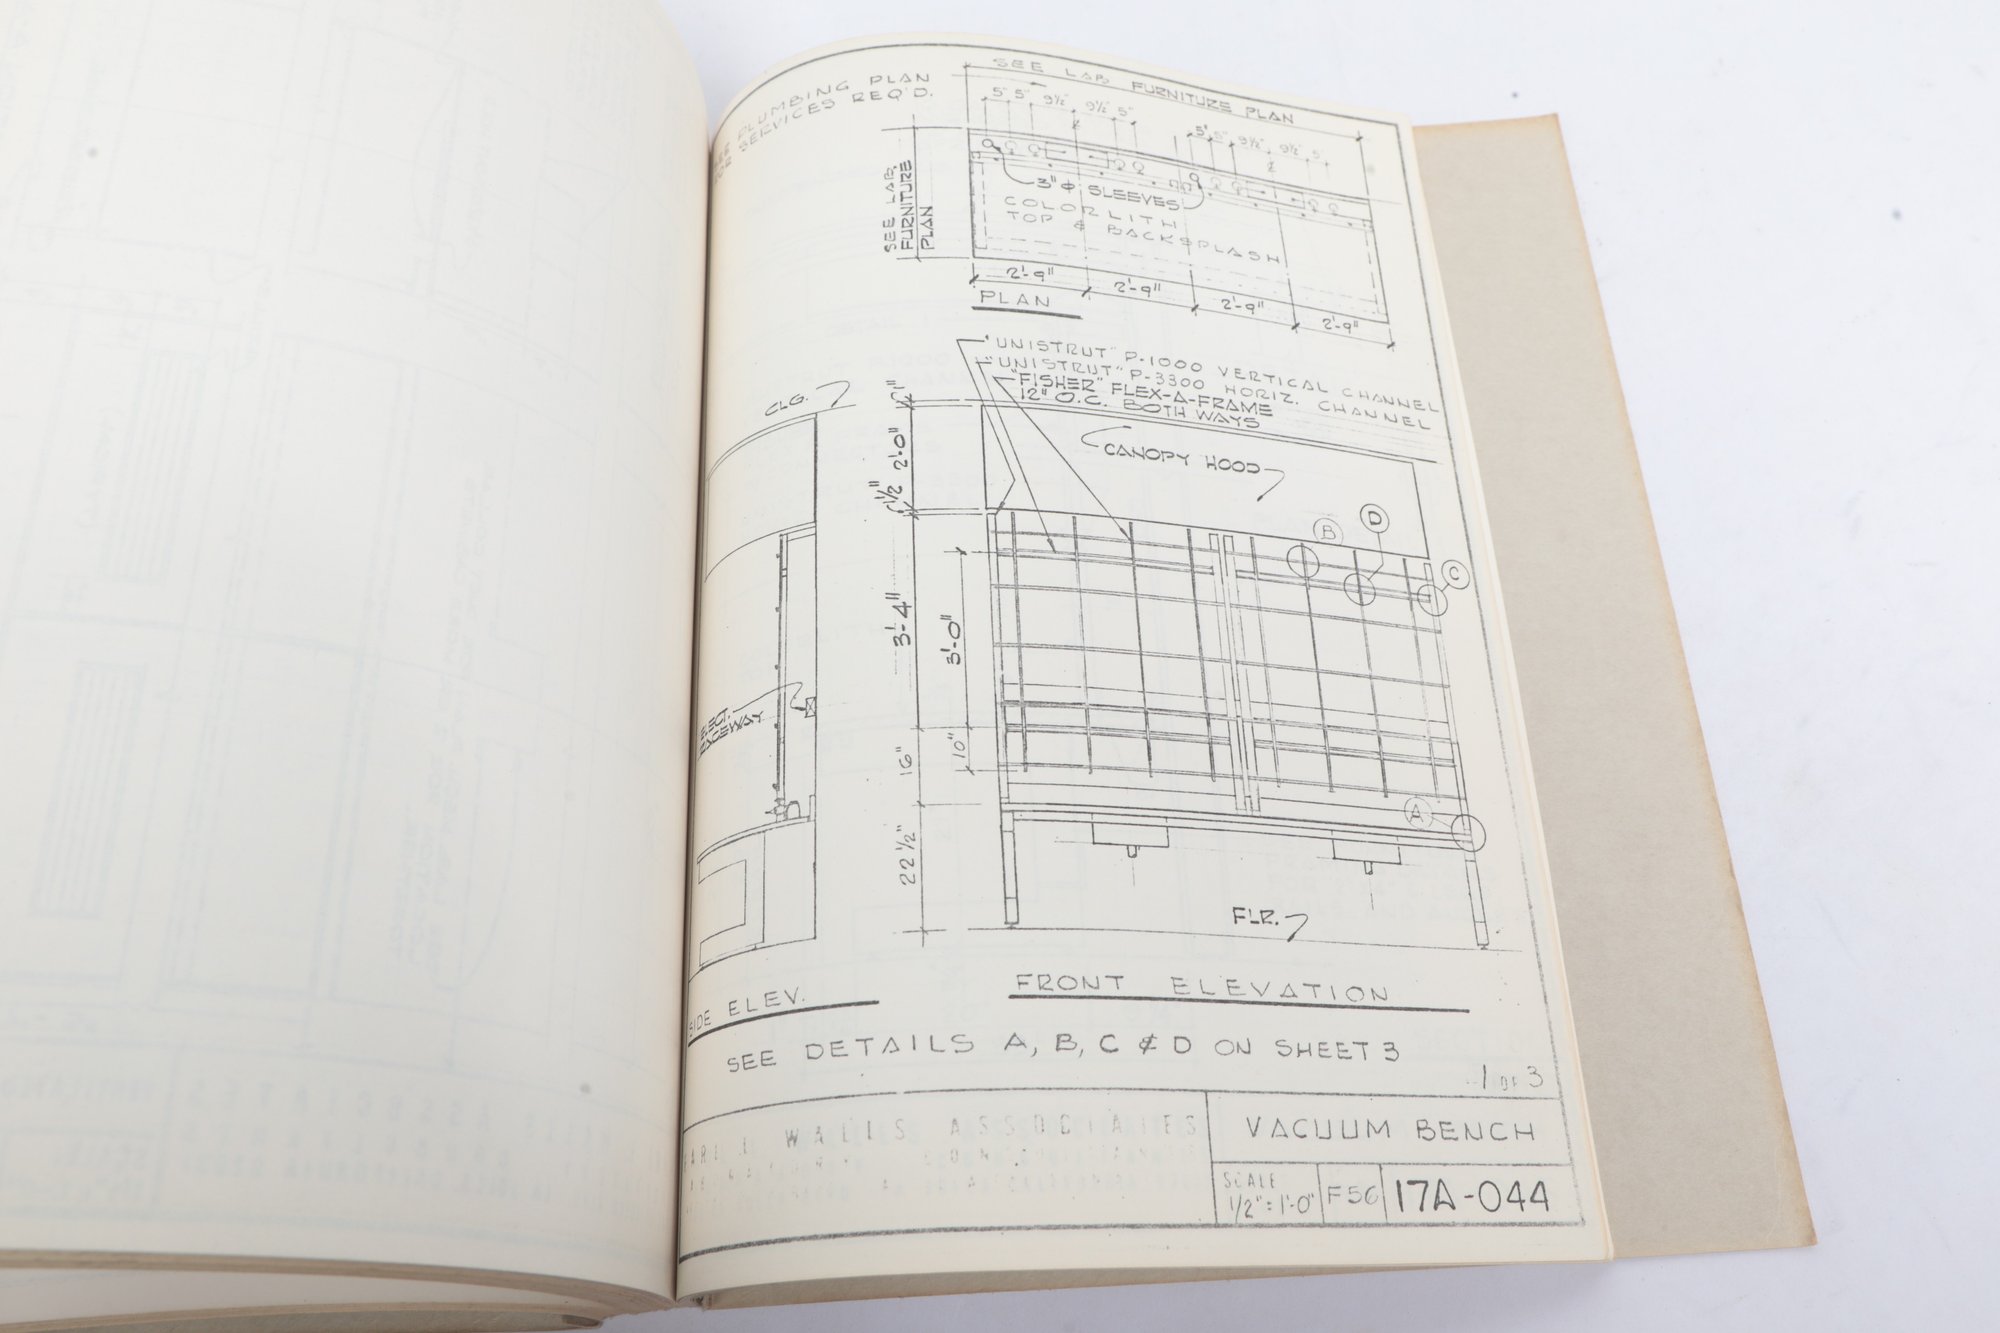 PLUMBING PLAN
FOR SERVICES REQ'D.
SEE LAB. FURNITURE PLAN
5" 5" 9½" 9½" 5"
5" 5" 9½" 9½" 5"
SEE LAB.
FURNITURE
PLAN
3" φ SLEEVES
COLORLITH
TOP & BACKSPLASH
2'-9"
2'-9"
2'-9"
2'-9"
PLAN
"UNISTRUT" P-1000 VERTICAL CHANNEL
"UNISTRUT" P-3300 HORIZ. CHANNEL
"FISHER" FLEX-A-FRAME
12" O.C. BOTH WAYS
CLG.
1"
2'-0"
1½"
CANOPY HOOD
B
D
C
3'-4"
3'-0"
ELECT.
RACEWAY
16"
10"
A
22½"
FLR.
SIDE ELEV.
FRONT ELEVATION
SEE DETAILS A, B, C & D ON SHEET 3
1 OF 3
WALLS ASSOCIATES
VACUUM BENCH
SCALE
1/2" = 1'-0"
F56
17A-044